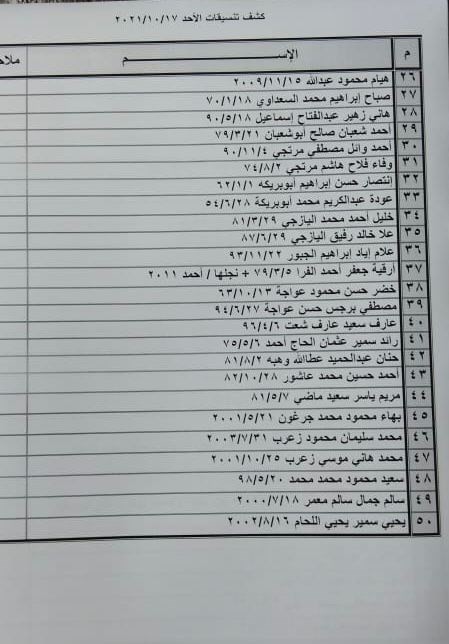 كشف تنسيقات الأحد ٢٠٢١/١٠/١٧
م الإســـــم ملاح
٢٦ هيام محمود عبدالله ٢٠٠٩/١١/١٥
٢٧ صباح إبراهيم محمد السعداوي ٧٠/١/١٨
٢٨ هاني زهير عبدالفتاح إسماعيل ٩٠/٥/١٨
٢٩ أحمد شعبان صالح أبوشعبان ٧٩/٣/٢١
٣٠ أحمد وائل مصطفي مرتجي ٩٠/١١/٤
٣١ وفاء فلاح هاشم مرتجي ٧٤/٨/٢
٣٢ إنتصار حسن إبراهيم أبوبريكه ٦٢/١/١
٣٣ عودة عبدالكريم محمد أبوبريكة ٥٤/٦/٢٨
٣٤ خليل أحمد محمد اليازجي ٨١/٣/٢٩
٣٥ علا خالد رفيق اليازجي ٨٧/٦/٢٩
٣٦ علام إياد إبراهيم الجبور ٩٣/١١/٢٢
٣٧ أرقية جعفر أحمد الفرا ٧٩/٣/٥ + نجلها / أحمد ٢٠١١
٣٨ خضر حسن محمود عواجة ٦٣/١٠/١٣
٣٩ مصطفي برجس حسن عواجة ٩٤/٦/٢٧
٤٠ عارف سعيد عارف شعت ٩٦/٤/٦
٤١ رائد سمير عثمان الحاج أحمد ٧٥/٥/٦
٤٢ حنان عبدالحميد عطاالله وهبه ٨١/٨/٢
٤٣ أحمد حسين محمد عاشور ٨٢/١٠/٢٨
٤٤ مريم ياسر سعيد ماضي ٨١/٥/٧
٤٥ بهاء محمود محمد جرغون ٢٠٠١/٥/٢١
٤٦ محمد سليمان محمود زعرب ٢٠٠٣/٧/٣١
٤٧ محمد هاني موسي زعرب ٢٠٠١/١٠/٢٥
٤٨ سعيد محمود محمد محمد ٩٨/٥/٢٠
٤٩ سالم جمال سالم معمر ٢٠٠٠/٧/١٨
٥٠ يحيي سمير يحيي اللحام ٢٠٠٢/٨/١٦